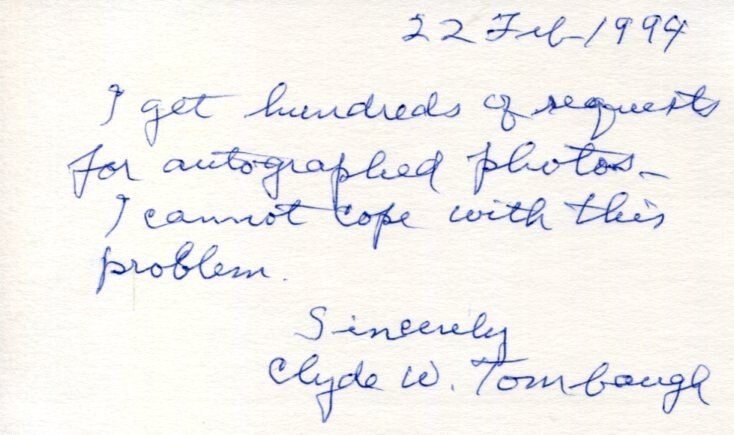 22 Feb 1994
I get hundreds of requests
for autographed photos –
I cannot cope with this
problem.
Sincerely
Clyde W. Tombaugh